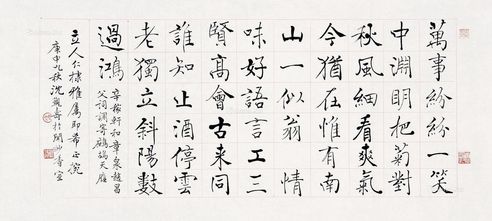 萬事紛紛一笑
中淵明把菊對
秋風細看爽氣
今猶在惟有南
山一似翁 情
味好語言工三
賢高會古来同
誰知止酒停雲
老獨立斜陽數
過鴻
辛稼軒和章泉趙昌
父詞調寄鷓鴣天
立人仁棣雅属即希正腕
庚申九秋沈覲壽於閩山香室